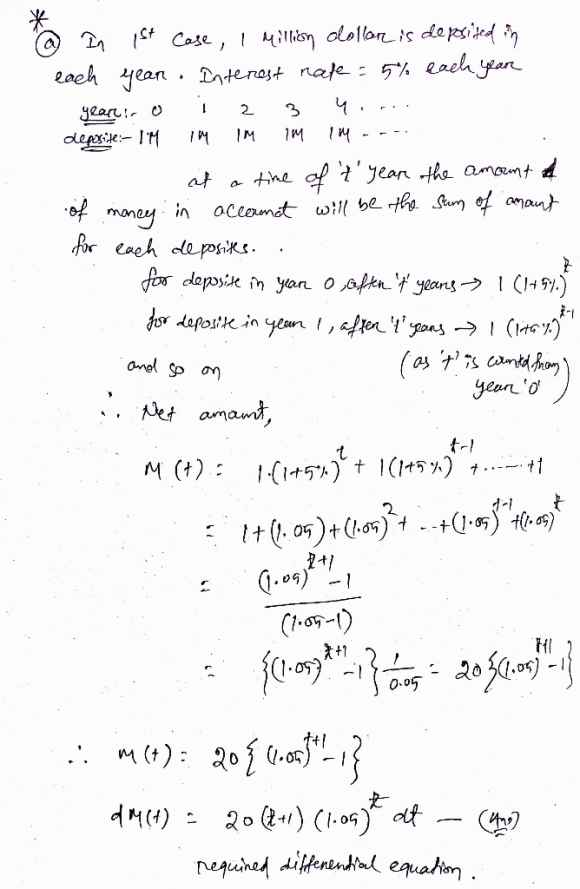 *
(a) In 1st Case, 1 Million dollar is deposited in
each year. Interest rate = 5% each year
year:- 0 1 2 3 4 . ...
deposite:- 1M 1M 1M 1M 1M - ----
at a time of 't' year the amount
of money in account will be the sum of amount
for each deposits. .
for deposite in year 0, after 't' years → 1 (1+5%)^t
for deposite in year 1, after 't' years → 1 (1+5%)^t-1
and so on (as 't' is counted from
year '0')
∴ Net amount,
M(t) = 1.(1+5%)^t + 1(1+5%)^t-1 + ...--- +1
= 1+(1.05)+(1.05)^2+ --+(1.05)^t-1+(1.05)^t
= (1.05)^t+1 -1
(1.05-1)
= {(1.05)^t+1 -1} 1/0.05 = 20{(1.05)^t+1 -1}
∴ M(t) = 20{(1.05)^t+1 -1}
dM(t) = 20(t+1)(1.05)^t dt — (Ans)
required differential equation.